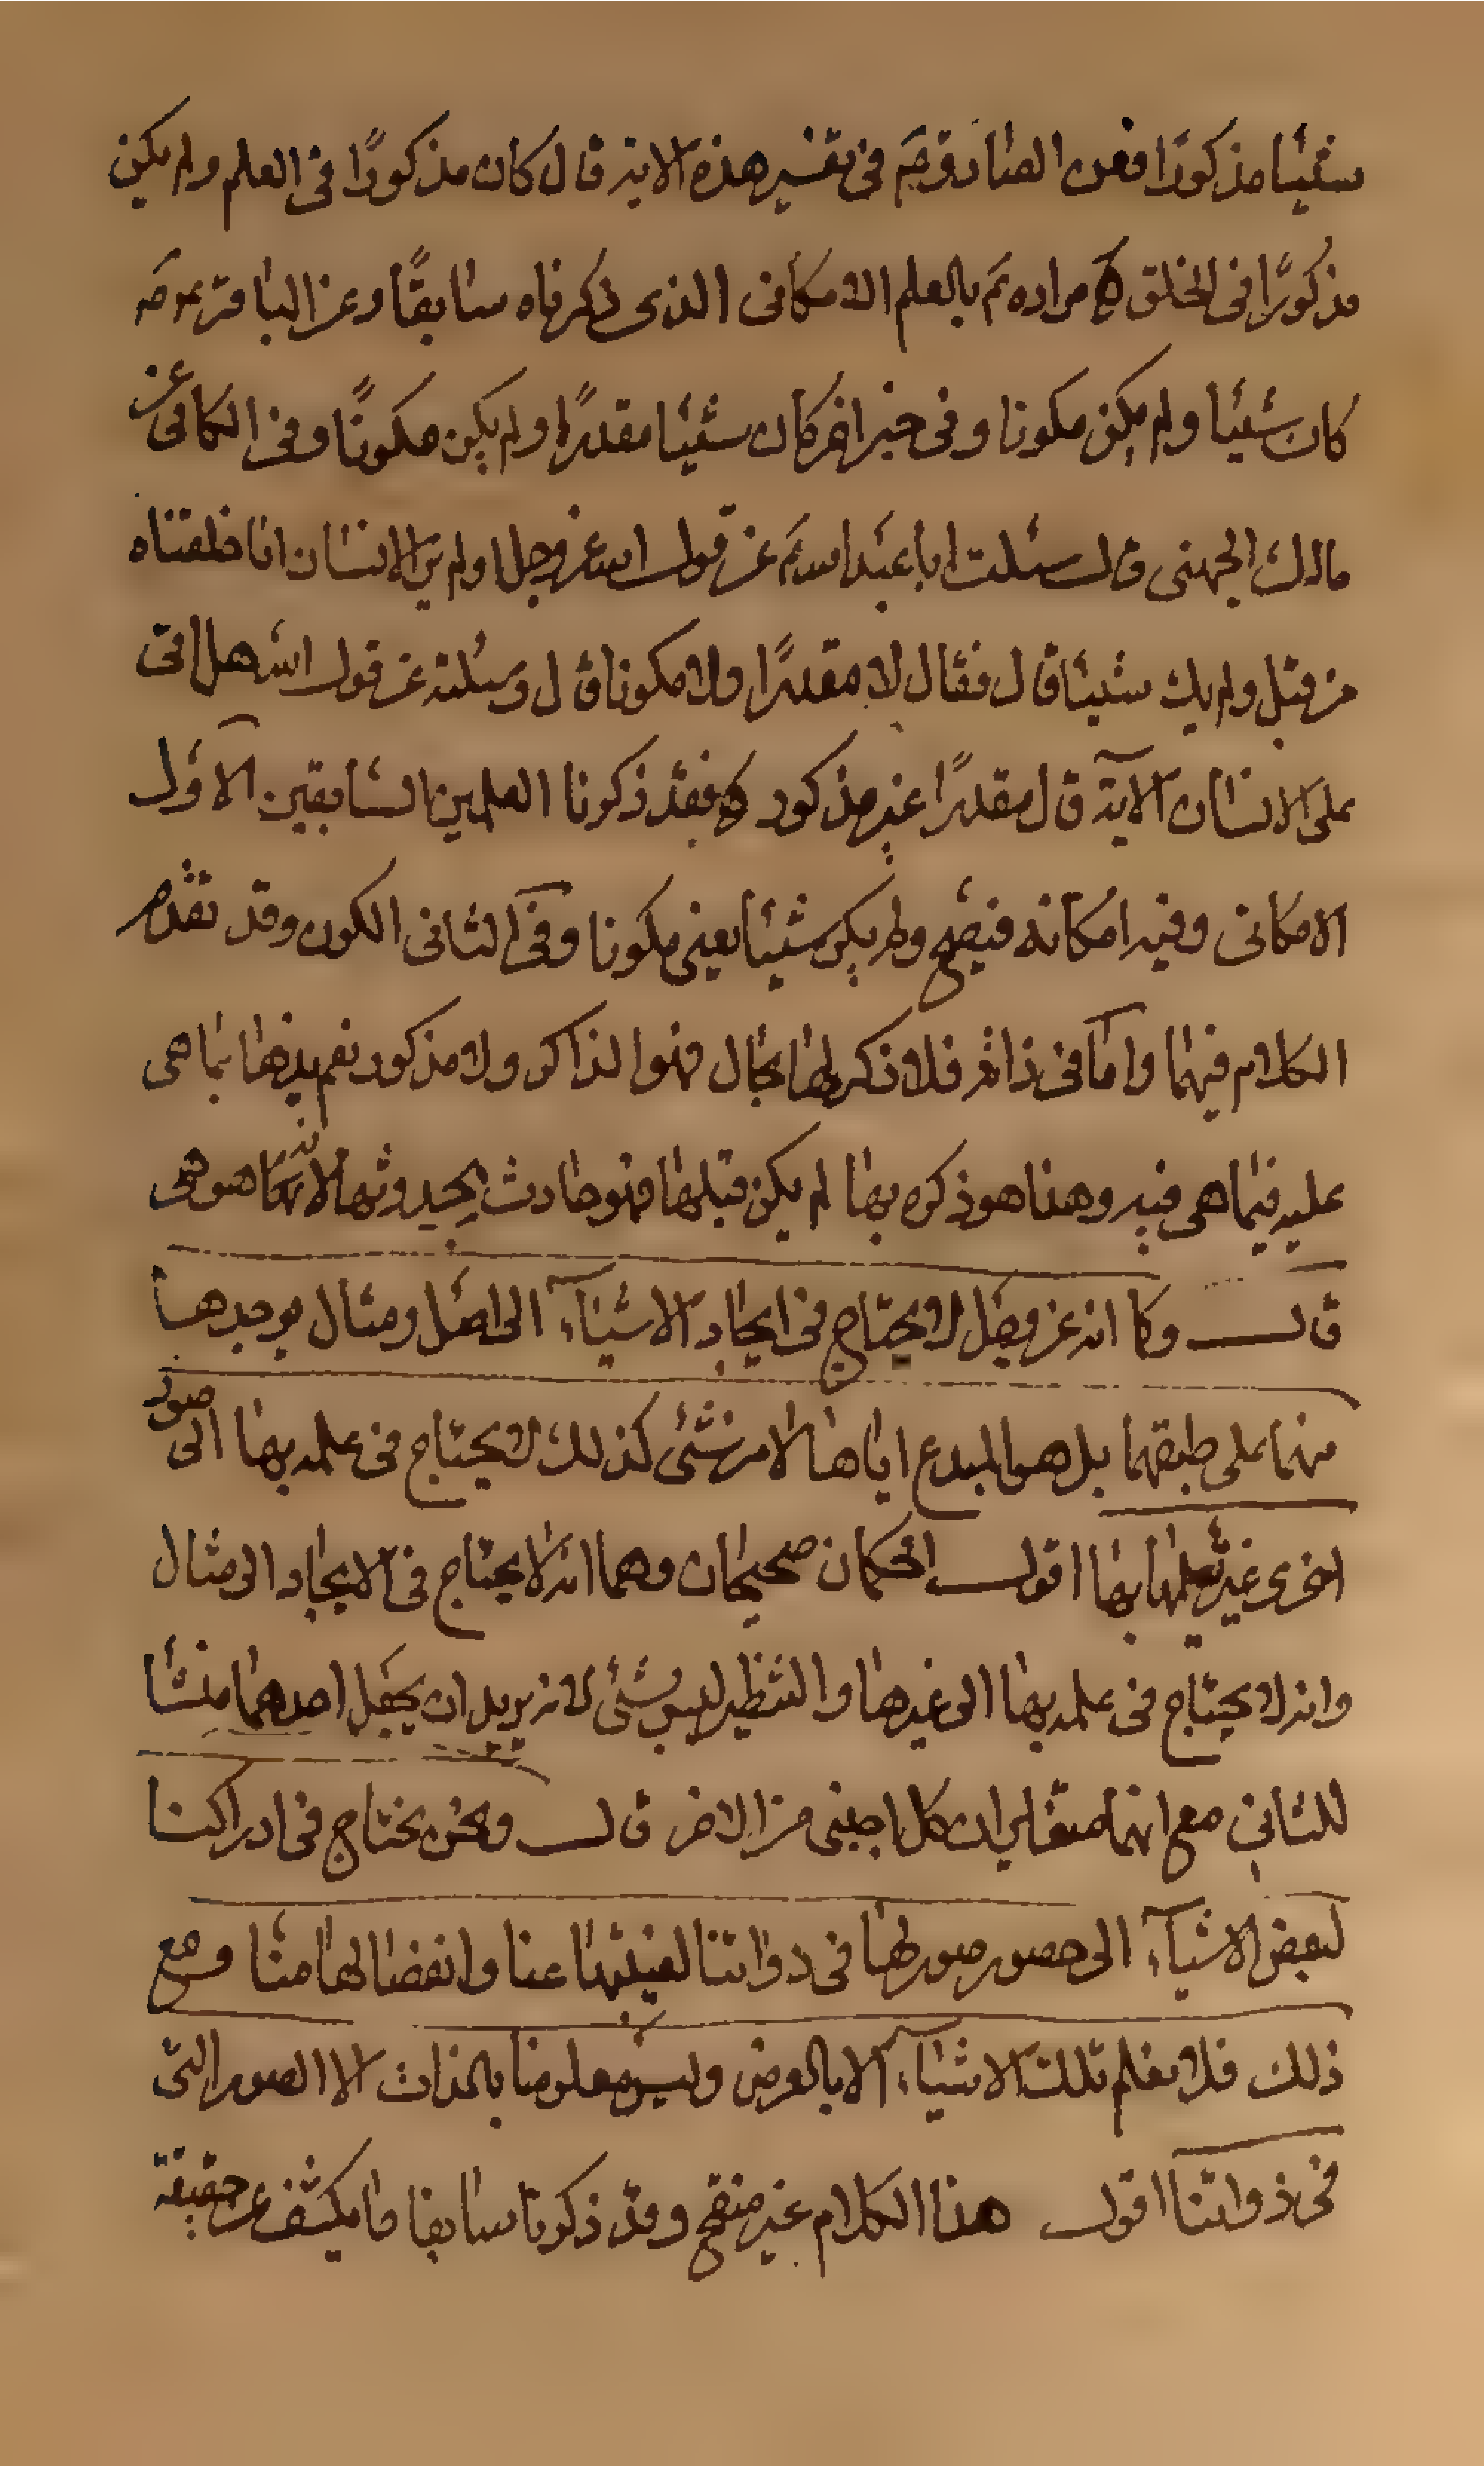 شيئا مذكورًا فعن الصادق عَم فى تفسير هذه الاية قال كان مذكورًا فى العلم ولم يكن
مذكورًا فى الخلق ه مراده عَم بالعلم الامكانى الذى ذكرناه سابقًا وعن الباقر عَم
كان شيئا ولم يكن مكونا وفى خبر اخر كان شيئا مقدرًا ولم يكن مكونًا وفى الكافى عن
مالك الجهنى قال سئلت ابا عبد الله عَم عن قول الله عز وجل اولم ير الانسان انا خلقناه
من قبل ولم يك شيئا قال فقال لا مقدرًا ولا مكونا قال وسئلته عن قول الله هل اتى
على الانسان الآية قال مقدرًا غير مذكور ه فقد ذكرنا العلمين السابقين الاول
الامكانى وفيه امكانه فيصح ولم يكن شيئا يعنى مكونا وفى الثانى الكون وقد تقدم
الكلام فيهما واما فى ذاته فلا ذكر لها بحال فهو الذاكر ولا مذكور نعم يذكرها بما هى
عليه فيما هى فيه وهذا هو ذكره بها لم يكن قبلها فهو حادث بحدوثها لانه انما هو هى
قال وكما انه عز وجل لا يحتاج فى ايجاد الاشيآء الى اصل ومثال يوجدها
منهما على طبقهما بل هو المبدع اياها لا من شئ كذلك لا يحتاج فى علمه بها الى صور
اخرى غيرها يعلمها بها اقول الحكمان صحيحان وهما انه لا يحتاج فى الايجاد الى مثال
وانه لا يحتاج فى علمه بها الى غيرها والتنظير ليس بشئ لانه يريد ان يجعل احدهما منشأ
للثانى مع انهما متغايران كل اجنبى من الاخر قال ونحن نحتاج فى ادراكنا
لبعض الاشيآء الى حصور صورلها فى ذواتنا لغيبتها عنا وانفصالها منا ومع
ذلك فلا نعلم تلك الاشيآء الا بالعرض وليس معلومنا بالذات الا الصور التى
فى ذواتنا اقول هذا الكلام غير منقح وقد ذكرنا سابقا ما يكشف عن حقيقة